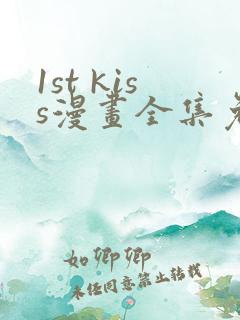 1st kis
s漫畫全集免
如卿卿
未经同意禁止转载